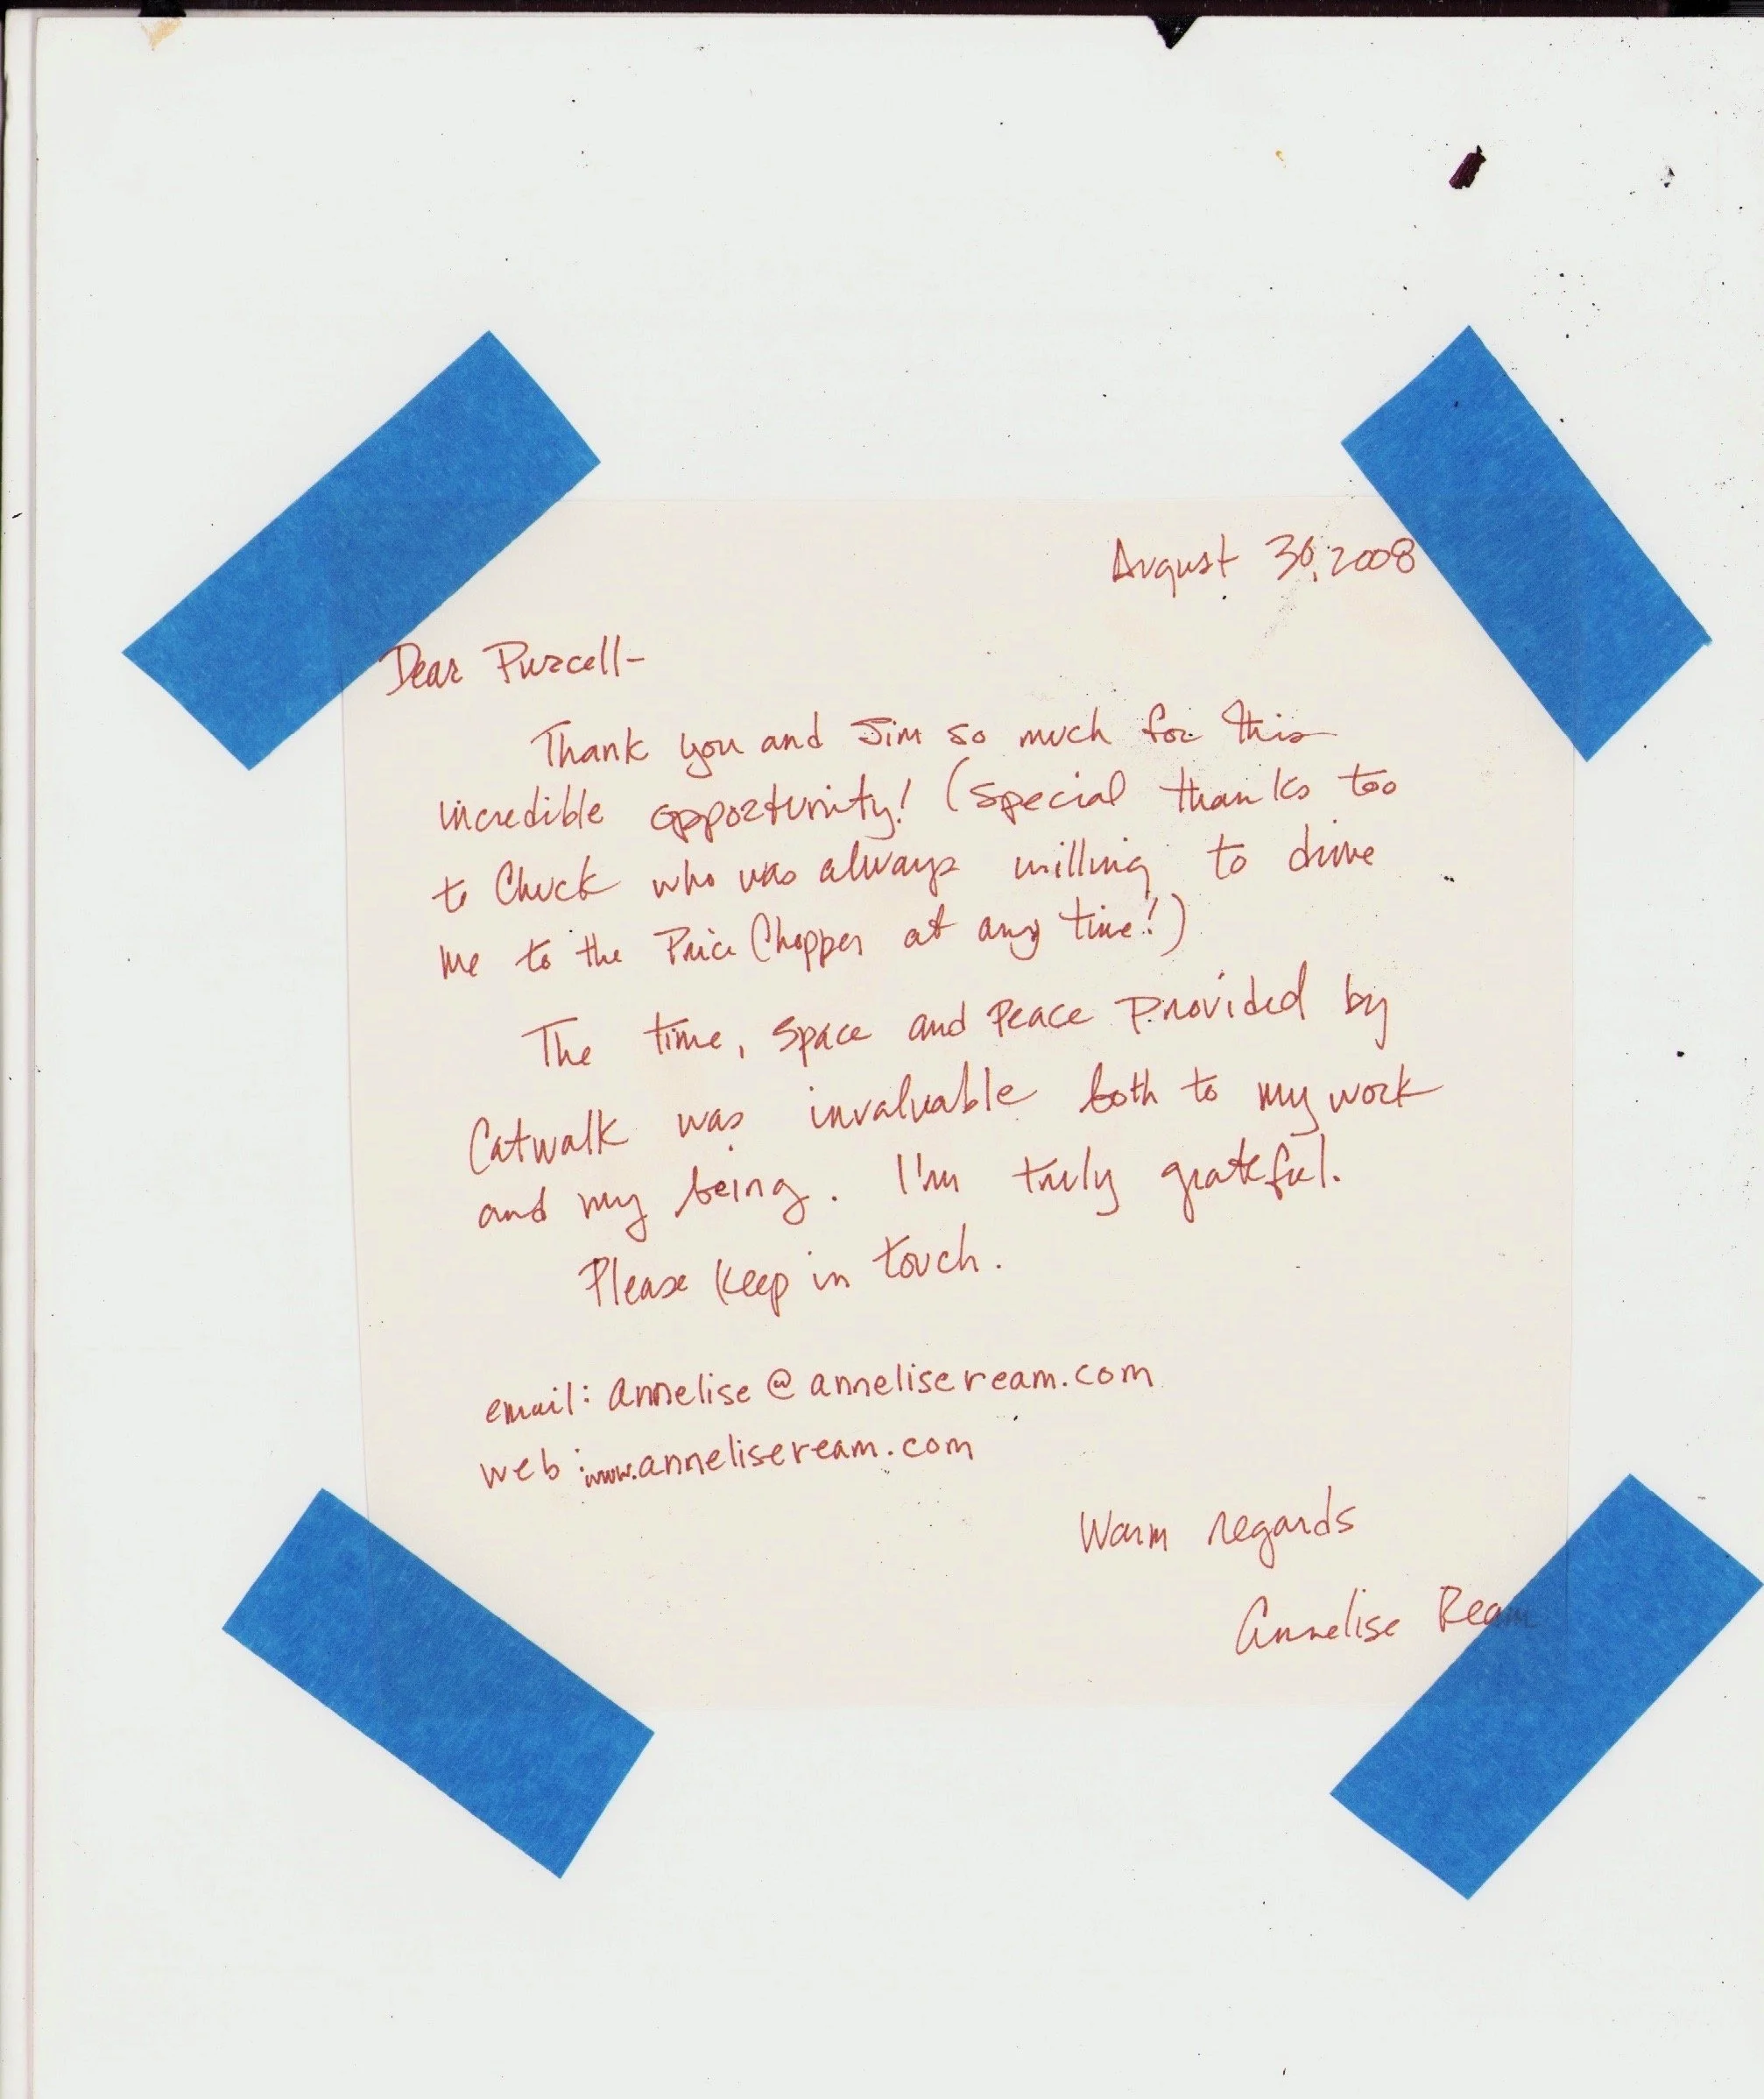 August 30, 2008
Dear Purcell-
Thank you and Jim so much for this
incredible opportunity! (special thanks too
to Chuck who was always willing to drive
me to the Price Chopper at any time!)
The time, space and peace provided by
Catwalk was invaluable both to my work
and my being. I'm truly grateful.
Please keep in touch.
email: annelise@anneliseream.com
web: www.anneliseream.com
Warm regards
Annelise Ream